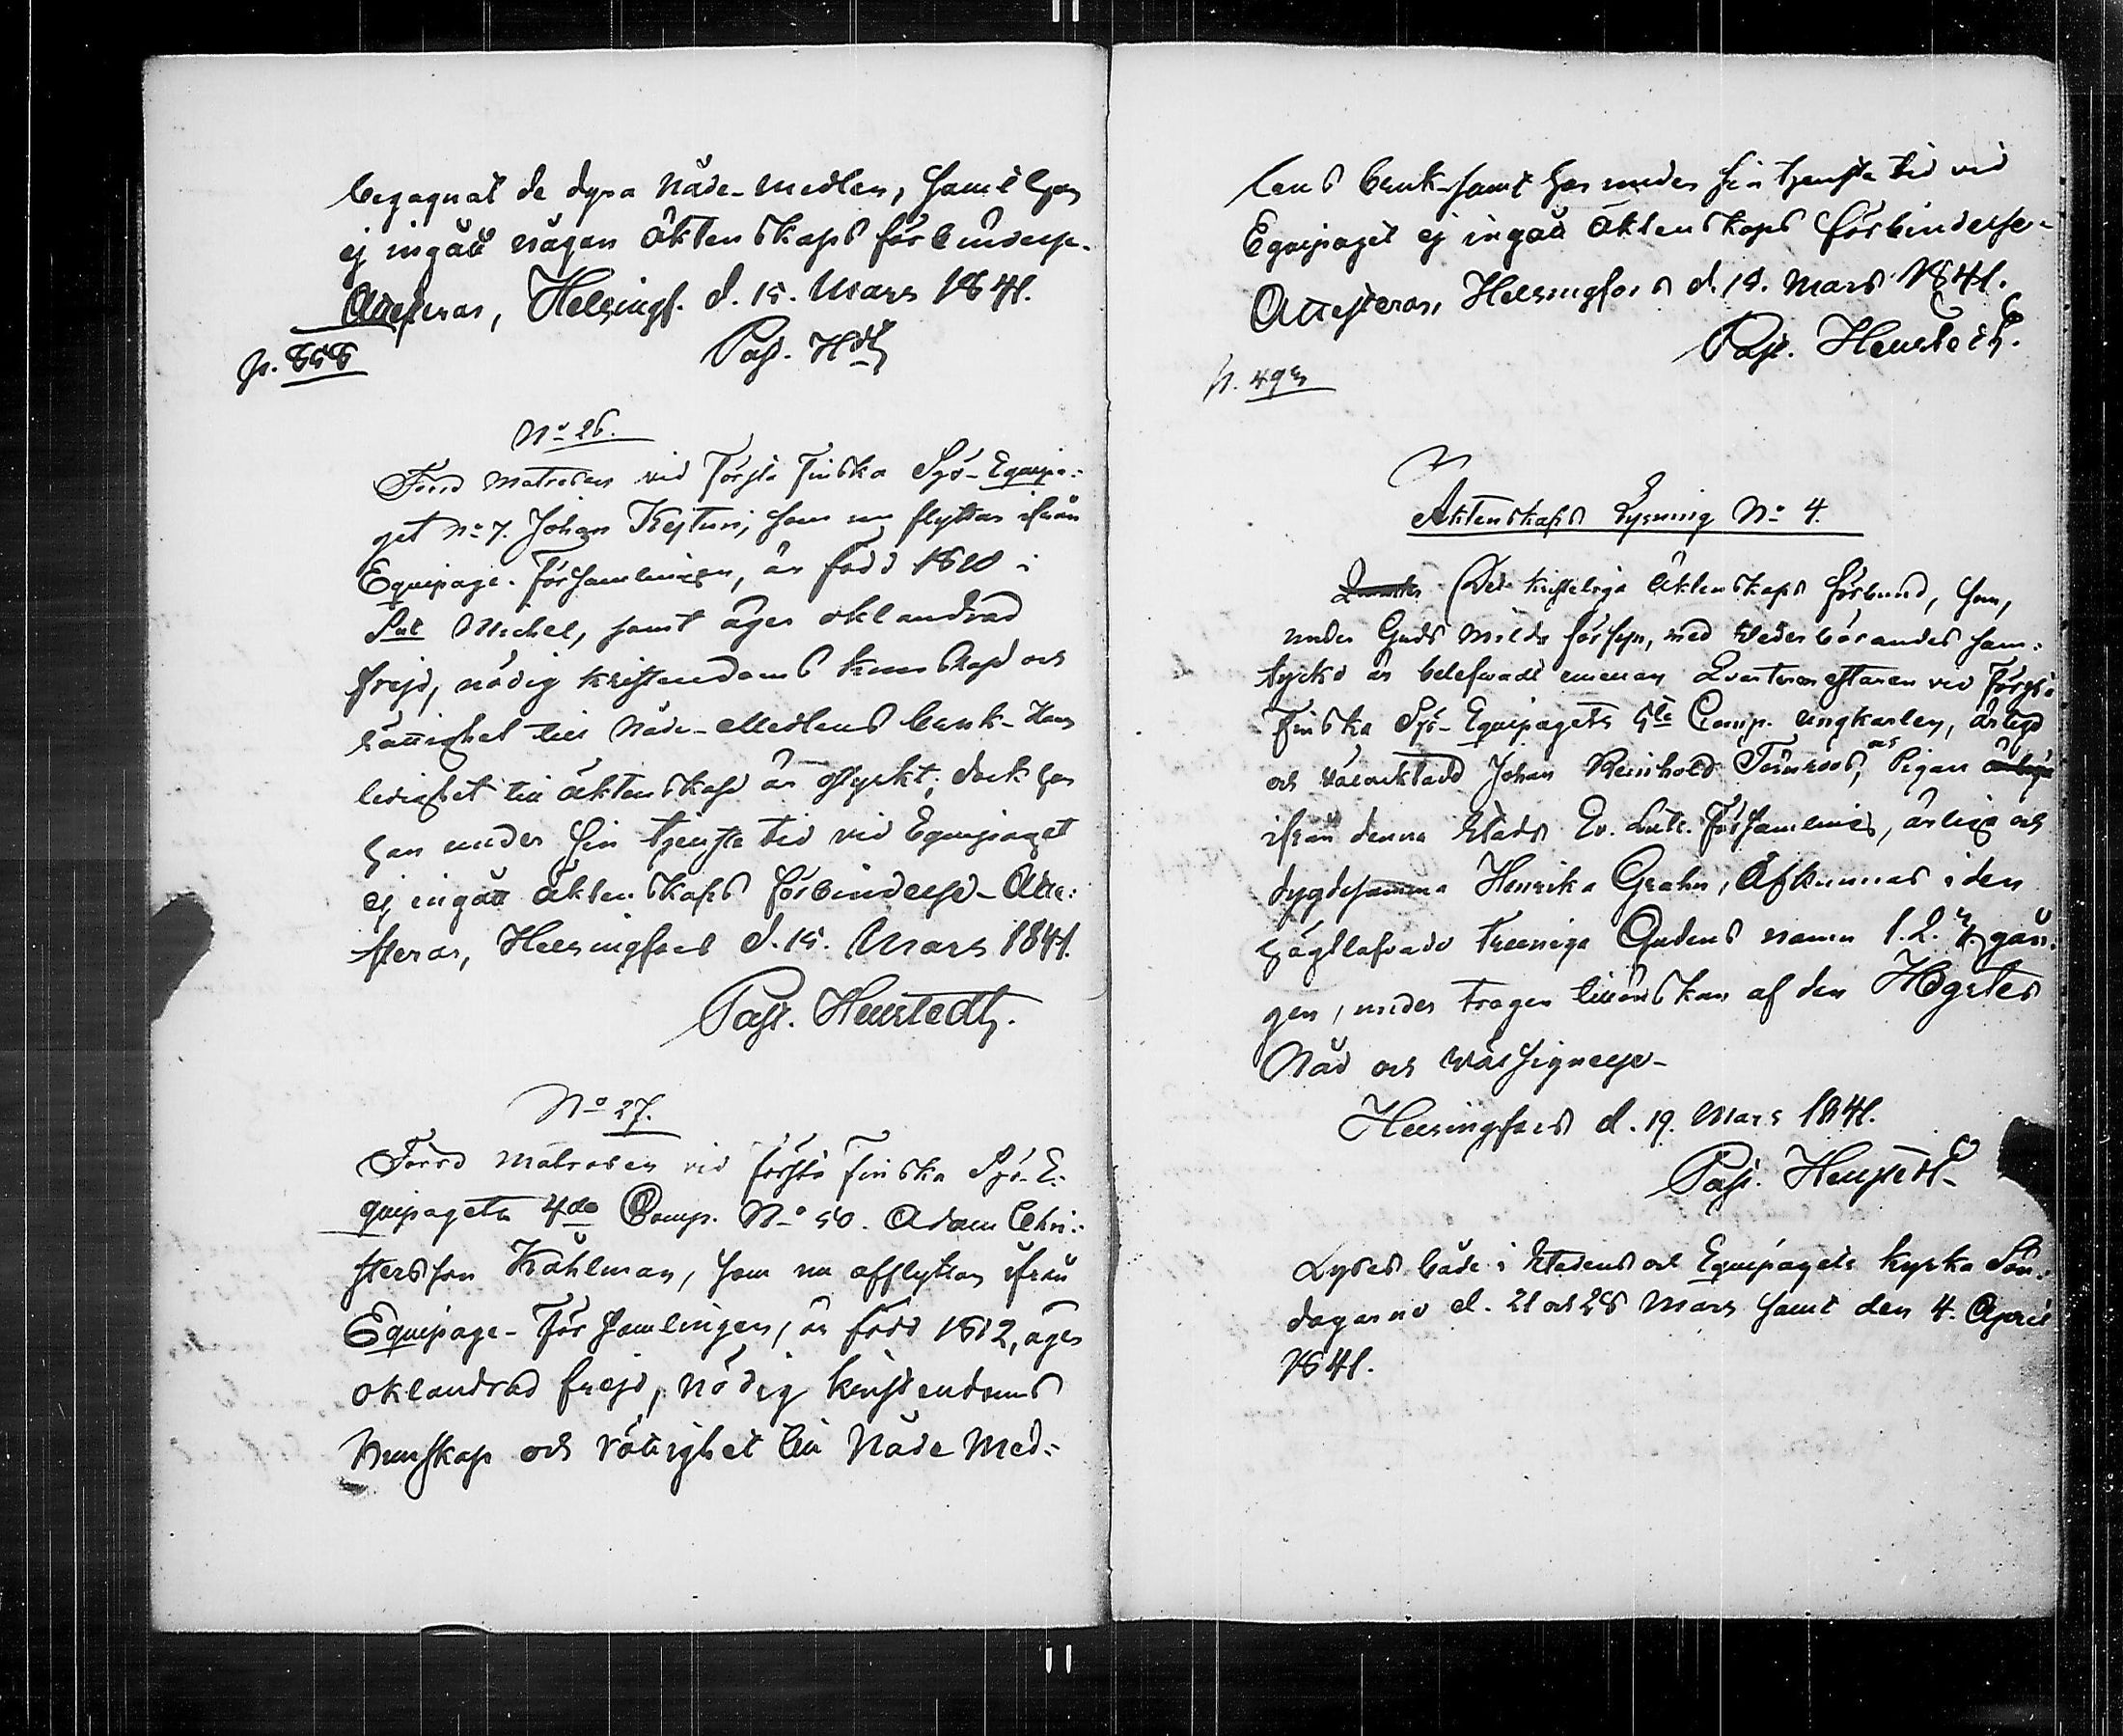 begagnat de dyra Nåde-medlen, samt har
ej ingått någon äktenskaps förbindelse.
Attesteras, Helsingf. d. 15. Mars 1841.
Past. Hdt
p. 858
No 26.
Förrd Matrosen vid Första Finska Sjö-Equipa-
get No 7. Johan Kejturi, som nu flyttar ifrån
Equipage-Församlingen, är född 1820 i
S:nt Michel, samt äger oklandrad
frejd, nödig kristendoms kunskap och
rättighet till Nåde-Medlens bruk. Hans
ledighet till äktenskap är ostyrkt; dock har
han under sin tjenste tid vid Equipaget
ej ingått äktenskaps förbindelse. Atte-
steras, Helsingfors d. 15. Mars 1841.
Past. Henstedt.
No 27.
Förrd Matrosen vid första Finska Sjö-E-
quipagets 4de Comp. No 50. Adam Chri-
stersson Kåhlman, som nu afflyttar ifrån
Equipage-Församlingen, är född 1812, äger
oklandrad frejd, nödig kristendoms
kunskap och rättighet till Nåde Med-
lens bruk samt har under sin tjenste tid vid
Equipaget ej ingått äktenskaps förbindelse.
Attesteras, Helsingfors d. 18. Mars 1841.
Past. Henstedt.
p. 493
Äktenskaps Lysning No 4.
Det kristeliga äktenskaps förbund, som,
under Guds milda försyn, med vederbörandes sam-
tycke är belefvadt emellan Qvartermästaren vid Första
Finska Sjö-Equipagets 5te Comp. ungkarlen, ärlige
och välaktade Johan Reinhold Törnroos, och Pigan
ifrån denna Stads Ev. Luth. Församling, ärliga och
dygdesamma Henrika Grahn, Afkunnas i den
högtlofvade Treeniga Gudens namn 1. 2. 3. gån-
gen, under trogen tillönskan af den Högstes
Nåd och Välsignelse.
Helsingfors d. 19. Mars 1841.
Past. Henstedt.
Lystes både i Stadens och Equipagets kyrka Sön-
dagarne d. 21 och 28 Mars samt den 4. April
1841.